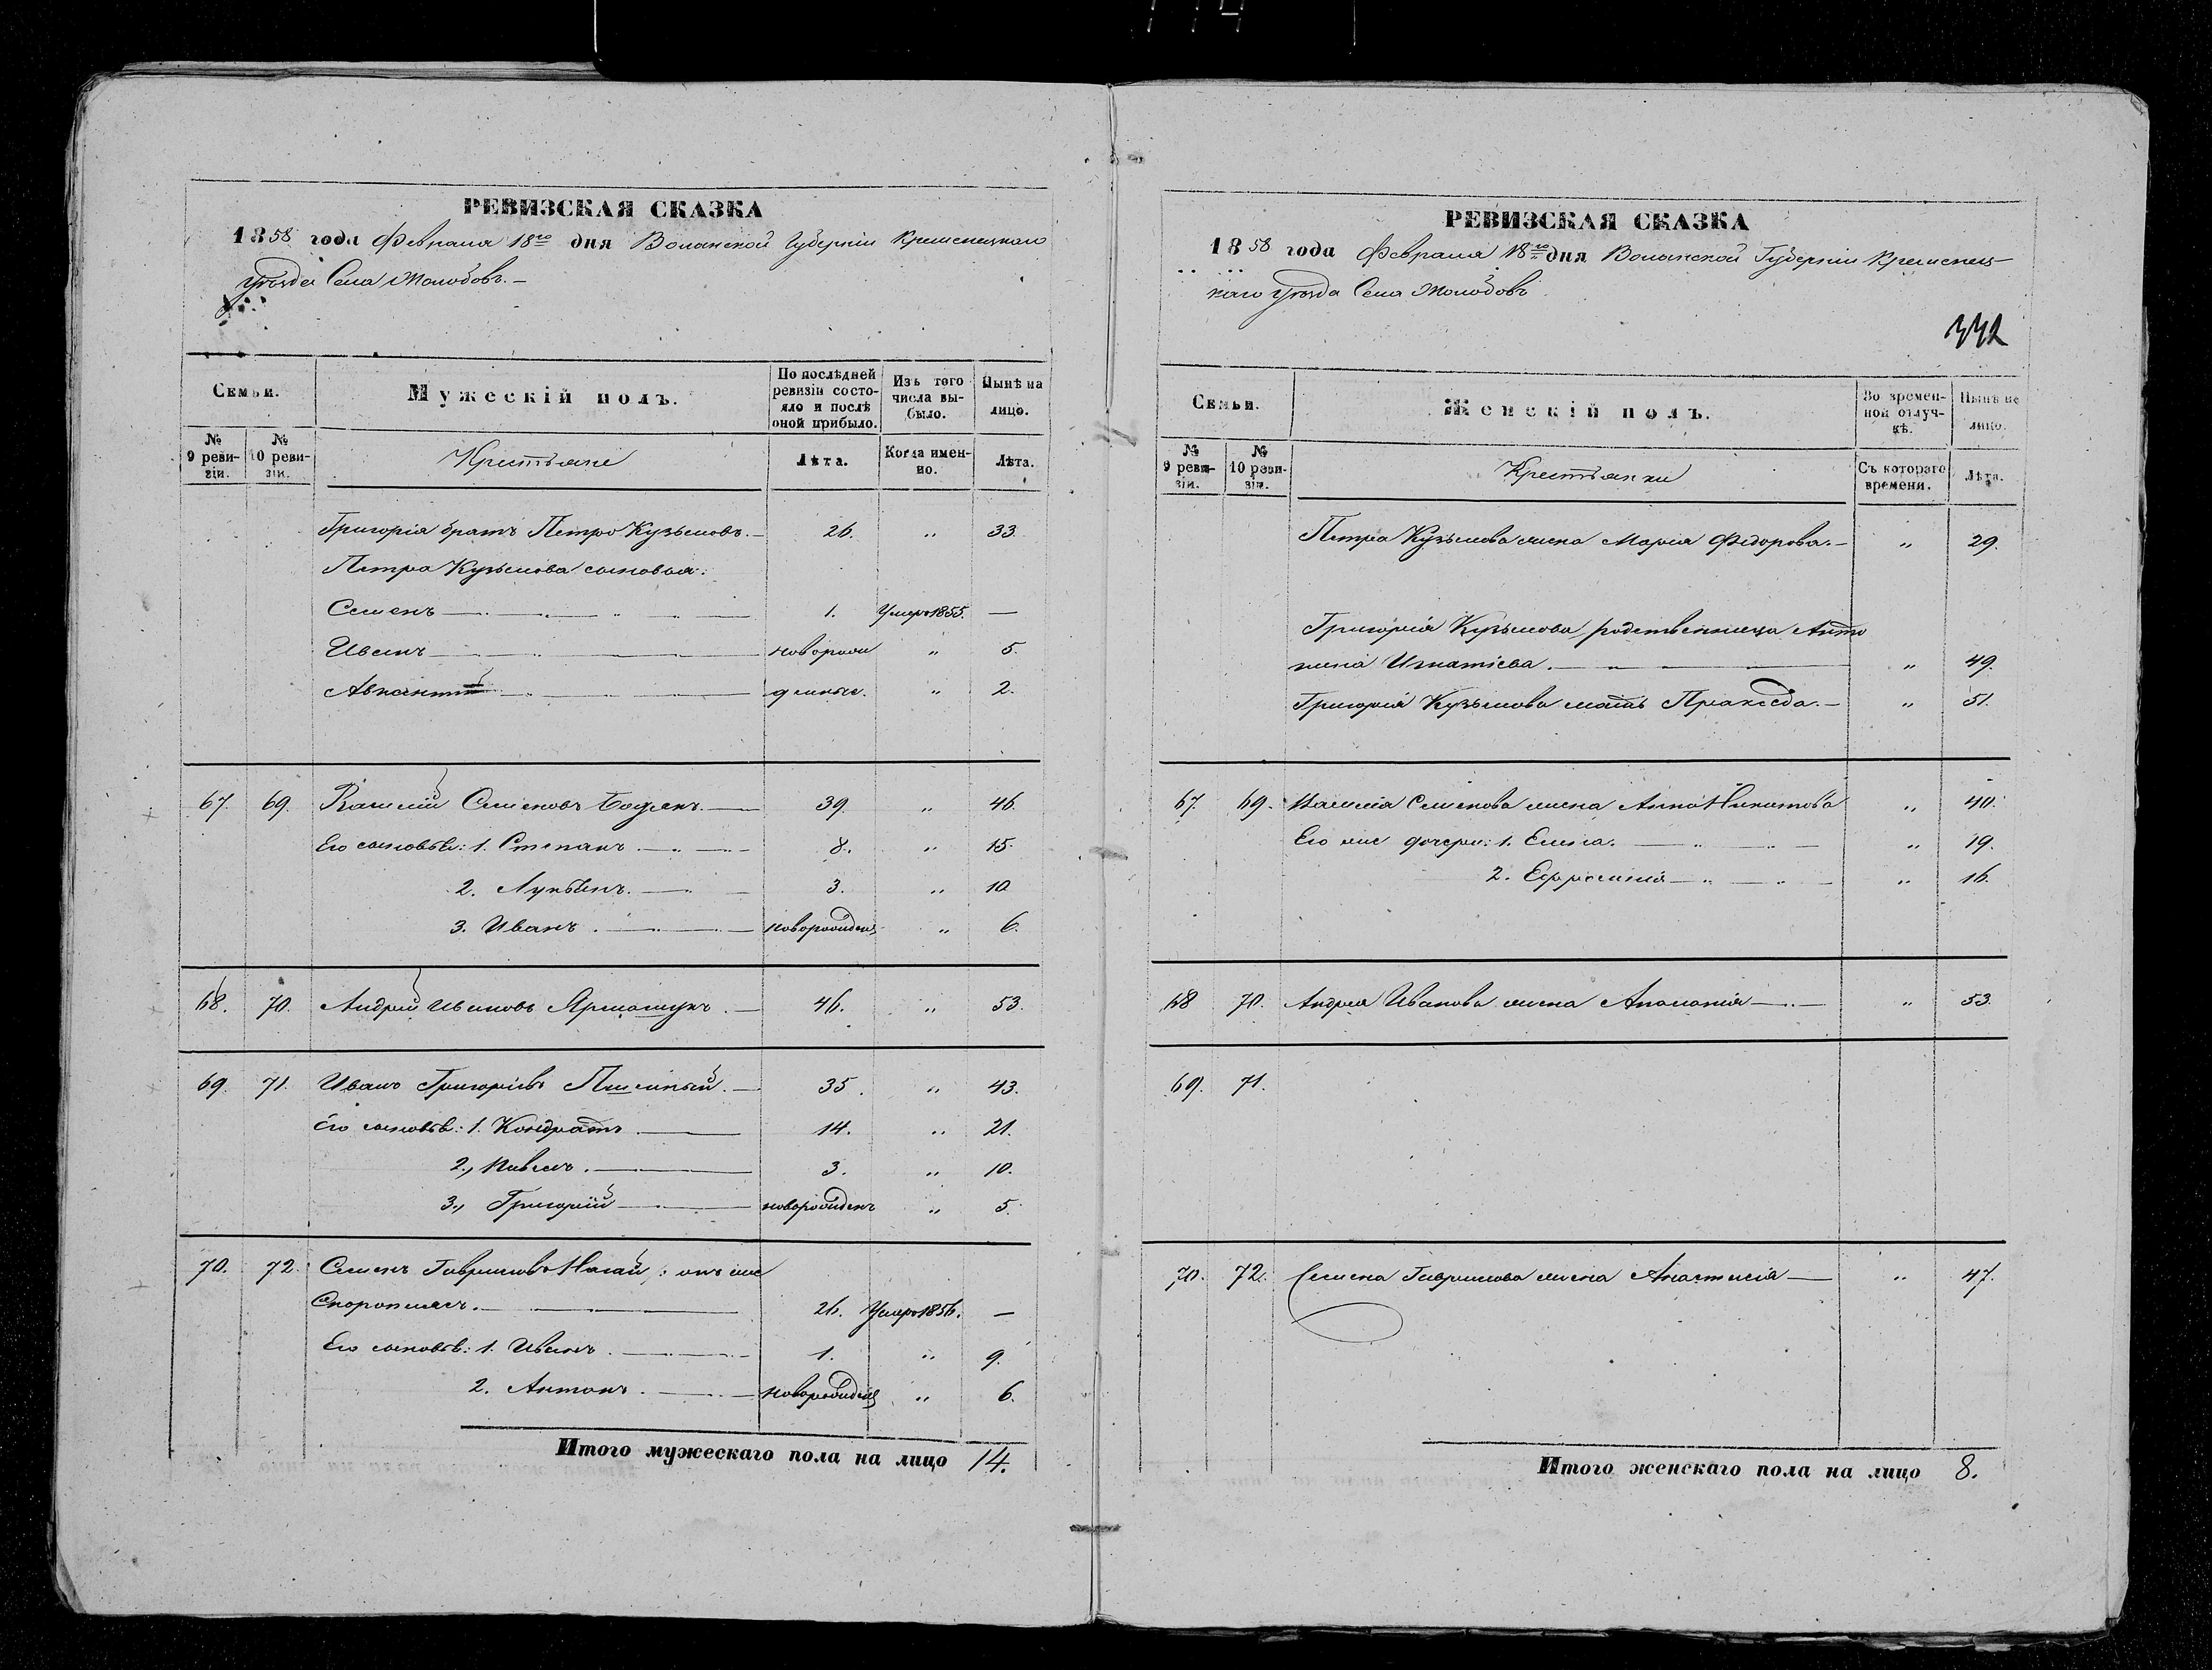 РЕВИЗСКАЯ СКАЗКА
1858 года Февраля 18го дня Волынской Губерніи Кременецкаго
уѣзда Села Жолобовъ. —
Семьи.
Мужескій полъ.
По послѣдней ревизіи состояло и послѣ оной прибыло.
Изъ того числа выбыло.
Нынѣ на лицо.
№ 9 ревизіи.
№ 10 ревизіи.
Крестьяне
Лѣта.
Когда именно.
Лѣта.
Григорія братъ Петро Кузьмовъ. — 26. „ 33.
Петра Кузьмова сыновья:
Семенъ — 1. Умеръ 1855. —
Иванъ — новорож „ 5.
денные. „ 2.
67. 69. Василій Семеновъ — 39. „ 46.
Его сыновья: 1. Степанъ. — 8. „ 15.
2. Лукьянъ. — 3. „ 10.
3. Иванъ. — новорожденъ „ 6.
68. 70. Андрей Ивановъ — 46. „ 53.
69. 71. Иванъ Григорьевъ — 35. „ 43.
Его сыновья: 1. Кондратъ — 14. „ 21.
2., Павелъ. — 3. „ 10.
3., Григорій — новорожденъ „ 5.
70. 72. Семенъ Гавриловъ Нагай; онъ же
26. Умеръ 1856. —
Его сыновья: 1. Иванъ. — 1. „ 9.
2. Антонъ. — новорожденъ „ 6.
Итого мужескаго пола на лицо 14.
РЕВИЗСКАЯ СКАЗКА
1858 года Февраля 18го дня Волынской Губерніи Кременец-
каго уѣзда Села Жолобовъ
332
Семьи.
Женскій полъ.
Во временной отлучкѣ.
Нынѣ на лицо.
№ 9 ревизіи.
№ 10 ревизіи.
Крестьянки
Съ котораго времени.
Лѣта.
Петра Кузьмова жена Марія Федорова. — „ 29.
Григорія Кузьмова родственница Анто
нина Игнатіева. — „ 49.
Григорія Кузьмова мать Праксѣда. — „ 51.
67. 69. Василія Семенова жена Анна „ 40.
Его же дочери: 1. Елена. — „ 19.
2. Ефросинія — „ 16.
68 70. Андрея Иванова жена Аполонія — „ 53.
69. 71.
70. 72. Семена Гаврилова жена Анастасія — „ 47.
Итого женскаго пола на лицо 8.